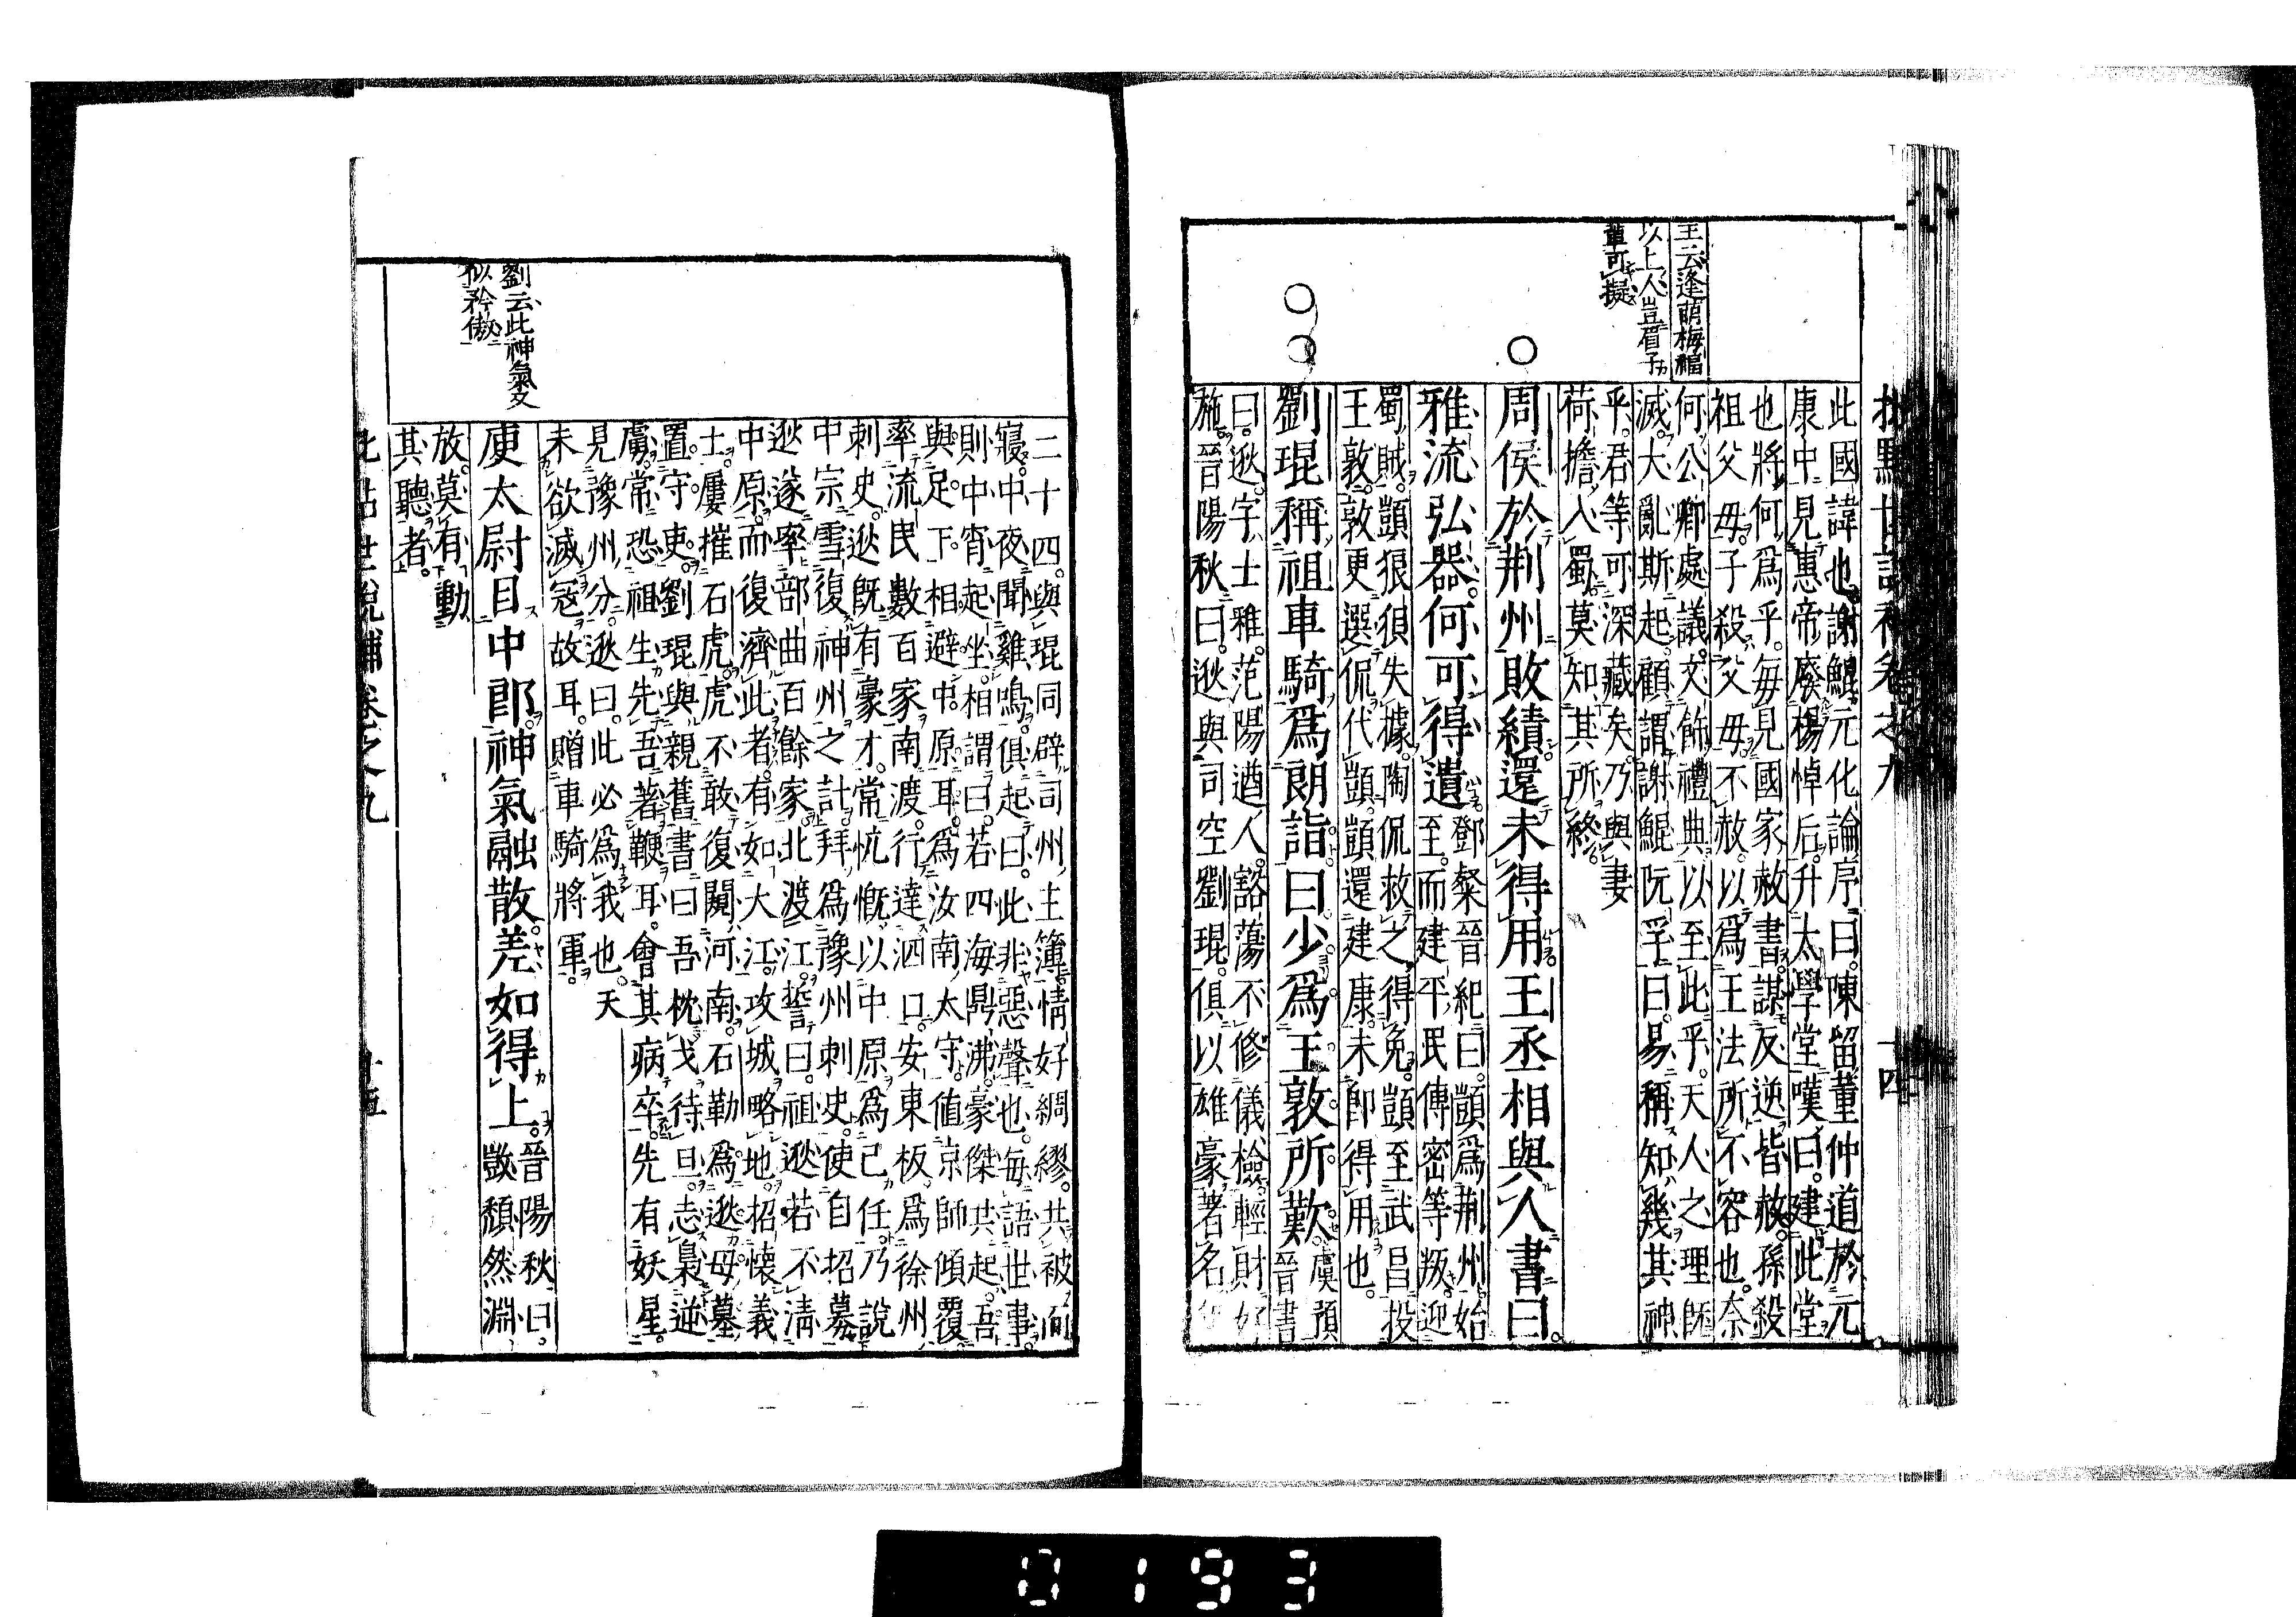 批點世說補卷之九 十四
王云逢萌梅福
以上人豈眉子
輩可擬
此國諱也謝鯤元化論序曰陳留董仲道於元
康中見惠帝廢楊悼后升太學堂嘆曰建此堂
也將何爲乎毎見國家赦書謀反逆皆赦孫殺
祖父母子殺父母不赦以爲王法所不容也奈
何公卿處議文飾禮典以至此乎天人之理旣
滅大亂斯起顧謂謝鯤阮孚曰易稱知幾其神
乎君等可深藏矣乃與妻
荷擔入蜀莫知其所終
周侯於荆州敗績還未得用王丞相與人書曰
雅流弘器何可得遺
鄧粲晉紀曰顗爲荆州始
至而建平民傳密等叛迎
蜀賊顗狼狽失據陶侃救之得免顗至武昌投
王敦敦更選侃代顗顗還建康未卽得用也
劉琨稱祖車騎爲朗詣曰少爲王敦所歎
虞預
晉書
曰逖字士雅范陽遒人豁蕩不修儀檢輕財好
施晉陽秋曰逖與司空劉琨俱以雄豪著名年
二十四與琨同辟司州主簿情好綢繆共被而
寢中夜聞雞鳴俱起曰此非惡聲也毎語世事
則中宵起坐相謂曰若四海鼎沸豪傑共起吾
與足下相避中原耳爲汝南太守値京師傾覆
率流民數百家南渡行達泗口安東板爲徐州
刺史逖旣有豪才常忼慨以中原爲己任乃說
中宗雪復神州之計拜爲豫州刺史使自招募
逖遂率部曲百餘家北渡江誓曰祖逖若不淸
中原而復濟此者有如大江攻城略地招懷義
士屢摧石虎虎不敢復闚河南石勒爲逖母墓
置守吏劉琨與親舊書曰吾枕戈待旦志梟逆
虜常恐祖生先吾著鞭耳會其病卒先有妖星
見豫州分逖曰此必爲我也天
未欲滅寇故耳贈車騎將軍
劉云此神氣文
似矜傲
庾太尉目中郎神氣融散差如得上
晉陽秋曰
敳頹然淵
放莫有動
其聽者
批點世說補卷之九 十五
0193